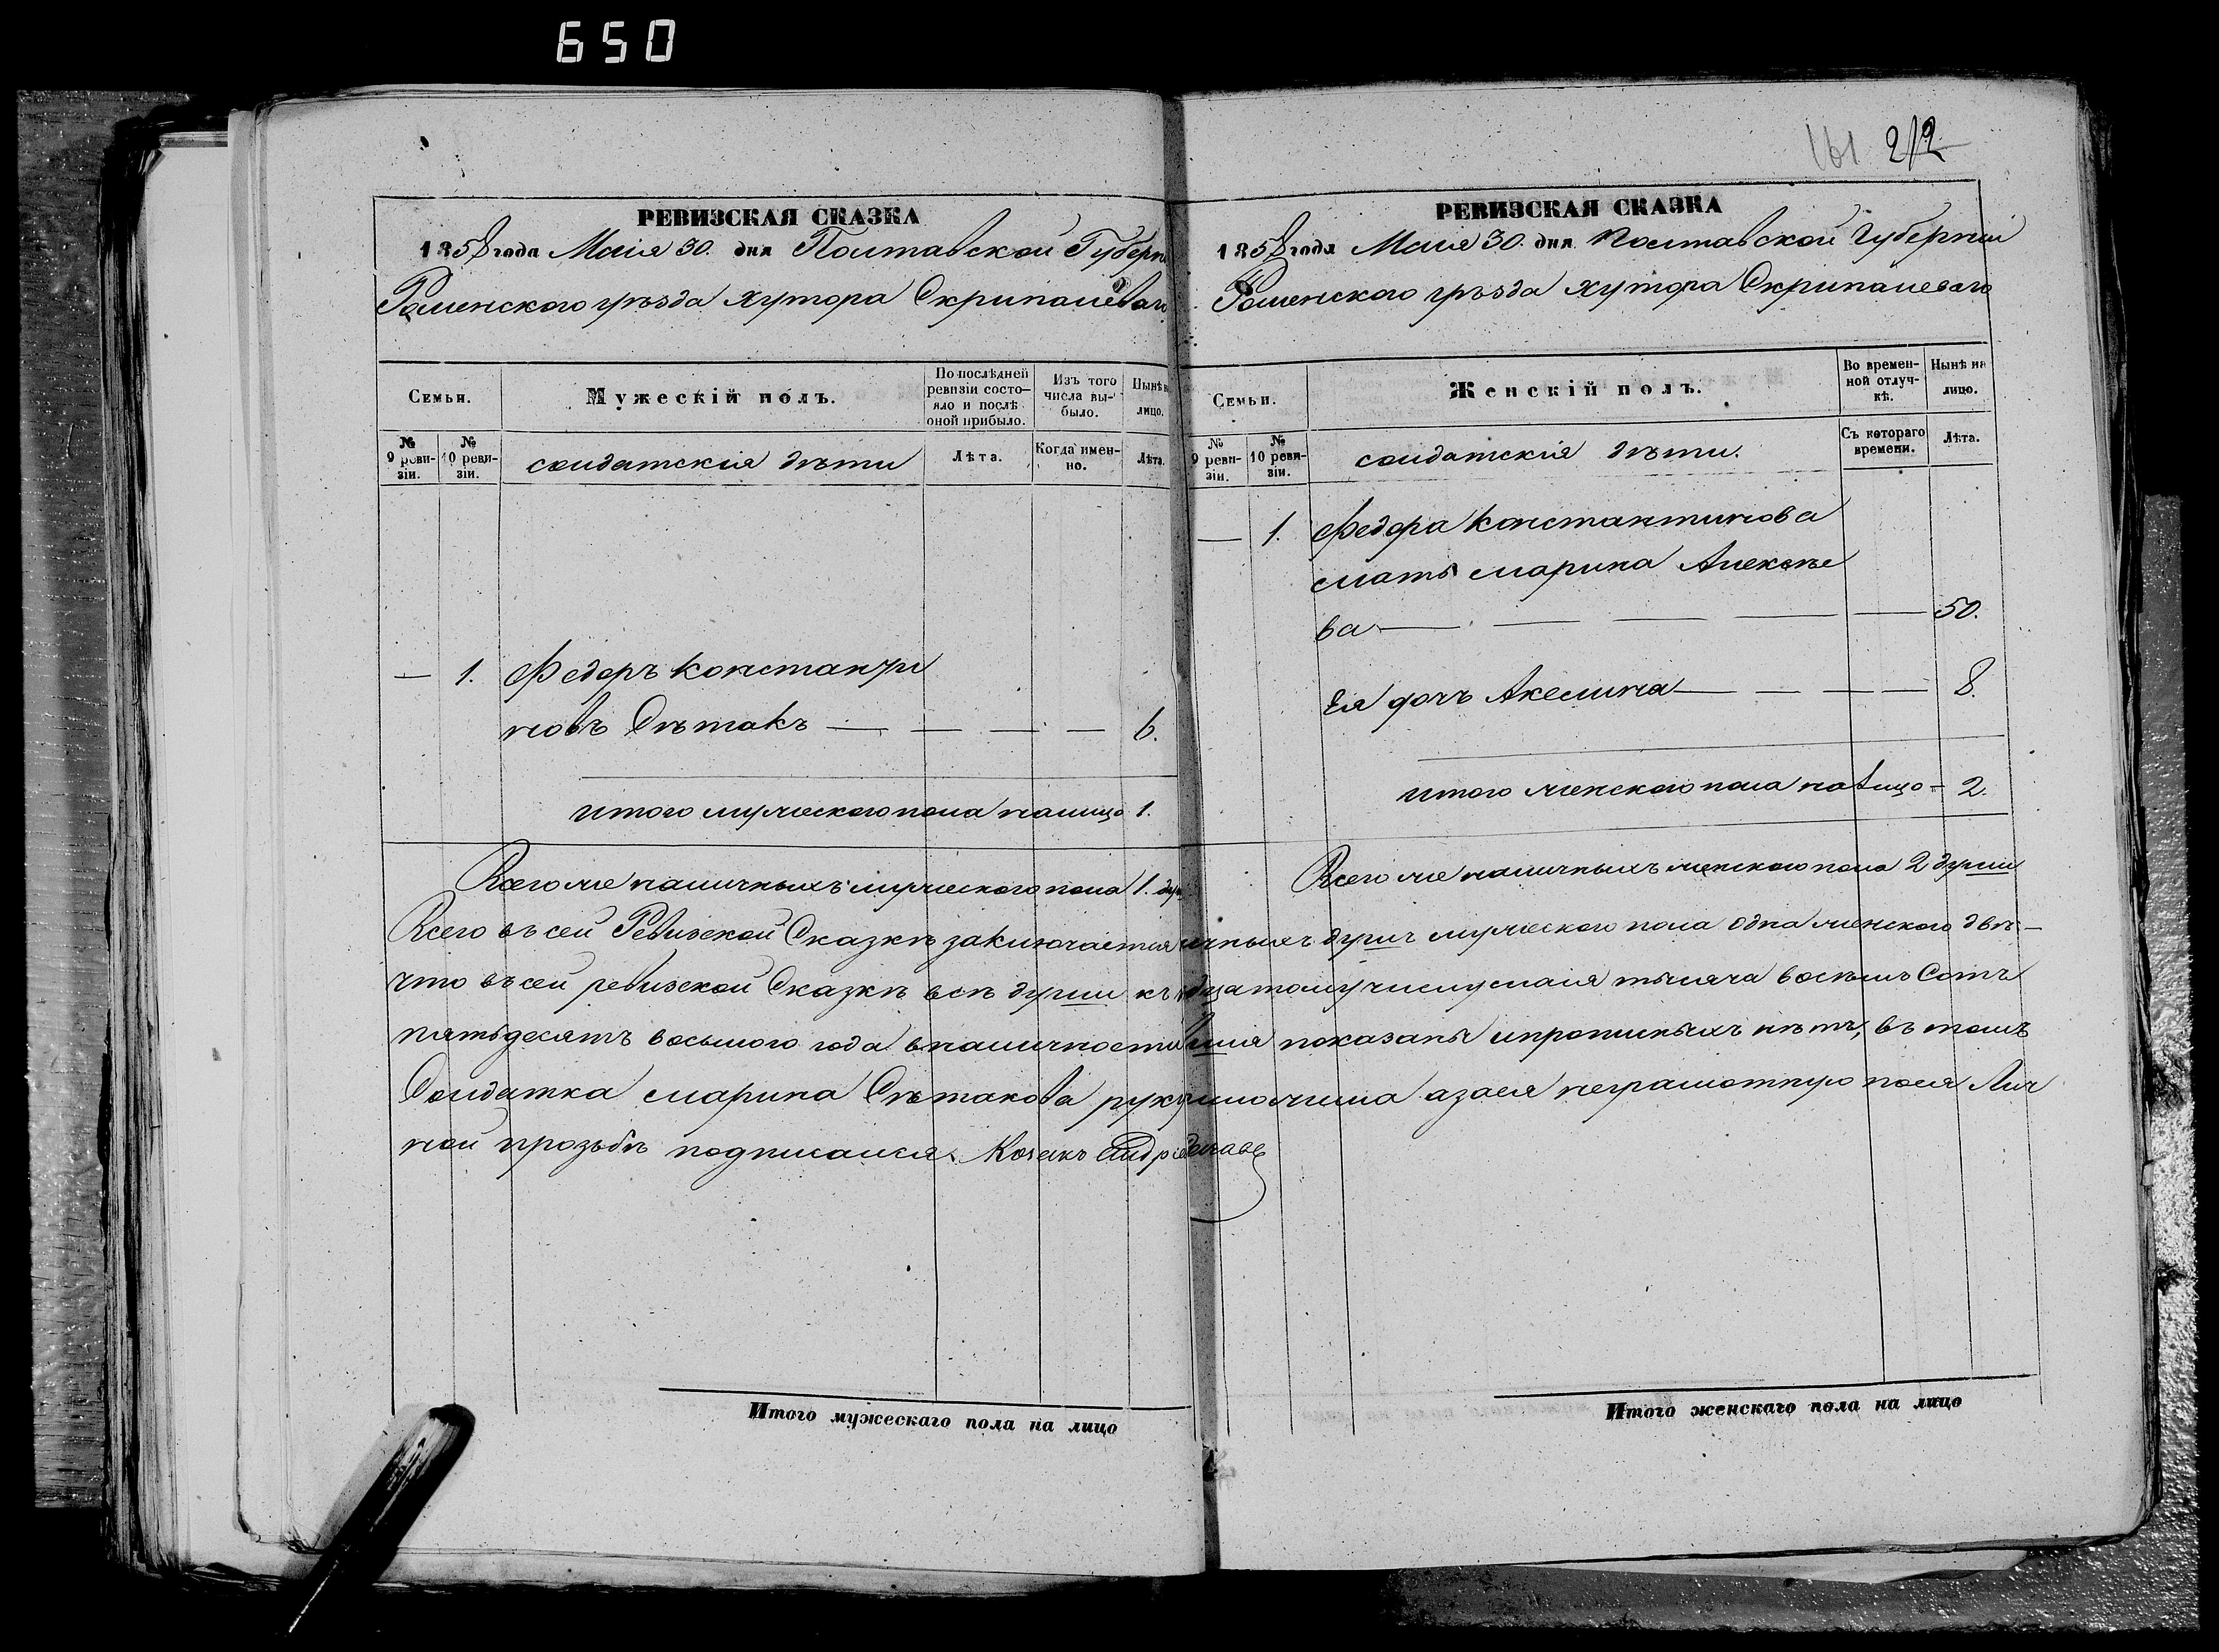 650
161 212
РЕВИЗСКАЯ СКАЗКА
1858 года Маія 30. дня Полтавской Губерн
Роменского уѣзда хутора Скрипалевого
Семьи.
Мужескій полъ.
По послѣдней ревизіи состояло и послѣ оной прибыло.
Изъ того числа выбыло.
Нынѣ н лицо.
№ 9 ревизіи.
№ 10 ревизіи.
солдатскія дѣти
Лѣта.
Когда именно.
Лѣта.
— 1. Федоръ Константи
новъ Сѣтакъ — — — — 6.
итого мужеского пола налицо 1.
РЕВИЗСКАЯ СКАЗКА
1858 года Маія 30. дня Полтавской Губерніи
Роменского уѣзда хутора Скрипалевого
Семьи.
Женскій полъ.
Во временной отлучкѣ.
Нынѣ на лицо.
№ 9 ревизіи.
№ 10 ревизіи.
солдатскія дѣти.
Съ котораго времени.
Лѣта.
— 1. Федора Константинова
мать Марина Алексѣе
ва — — — — — 50.
Ея дочь Акелина — — — — 8.
итого женского пола налицо - 2.
Всего же наличныхъ мужеского пола 1. ду
Всего же наличныхъ женского пола 2 души
Всего въ сей Ревизской Сказкѣ заключается ичныхъ душъ мужеского пола одна женского двѣ —
что въ сей ревизской Сказкѣ всѣ души къ дцатому числу маія тысяча восемь Сотъ
пятьдесятъ восьмого года вналичности показаны ипропискныхъ нѣтъ, въ томъ
Солдатка Марина Сѣтакова руку азаея неграмотную поея Лич
ной прозьбѣ подписался Козакъ
Итого мужескаго пола на лицо
Итого женскаго пола на лицо